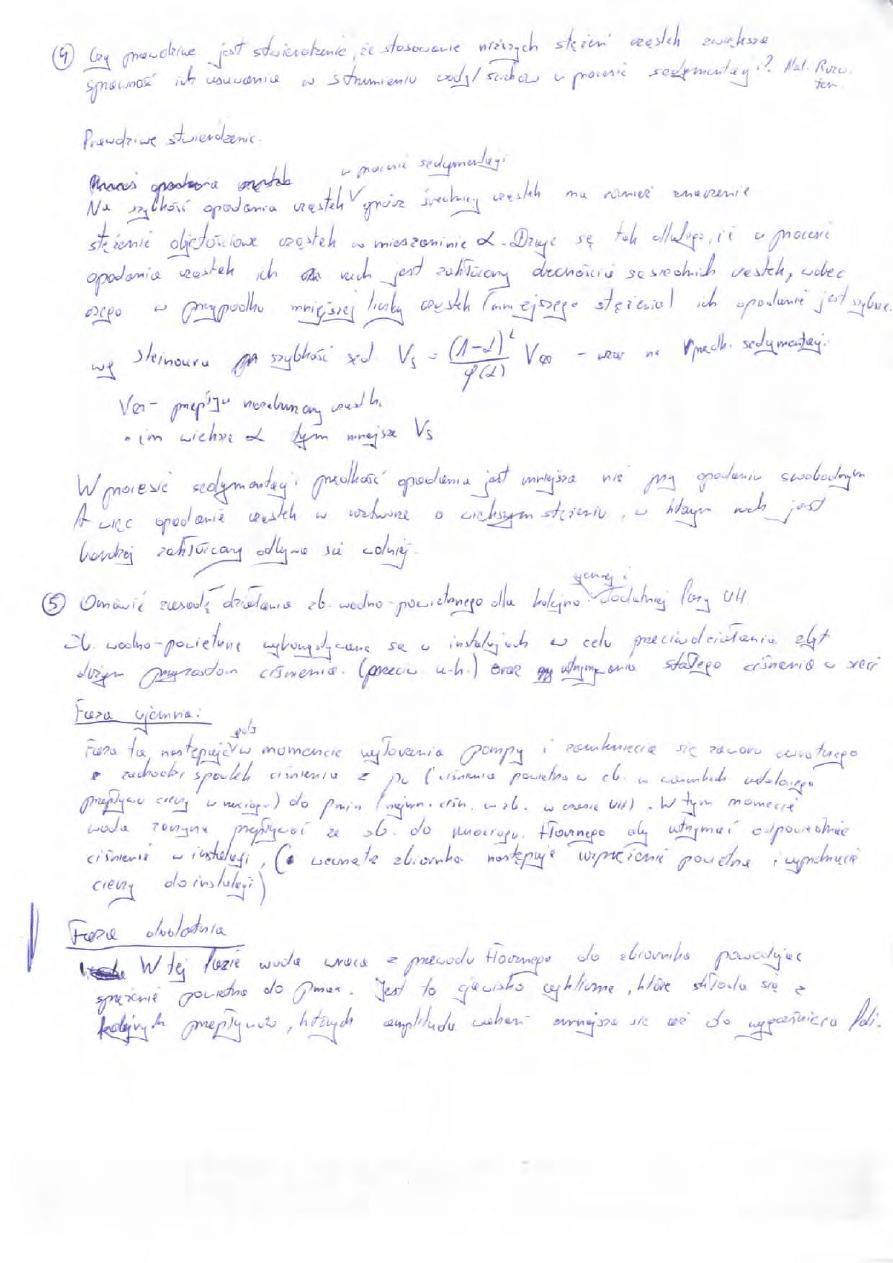 ④ Czy prawdziwe jest stwierdzenie, że stosowanie niższych stężeń cząstek zwiększa
sprawność ich usuwania w strumieniu wody/ścieków w procesie sedymentacji?
Prawdziwe stwierdzenie.
w procesie sedymentacji
Na szybkość opadania cząstek oprócz średnicy cząstek ma również znaczenie
stężenie objętościowe cząstek w mieszaninie α. Dzieje się tak dlatego, iż w procesie
opadania cząstek ich ruch jest zakłócony obecnością sąsiednich cząstek, wobec
czego w przypadku mniejszej liczby cząstek (mniejszego stężenia) ich opadanie jest szybsze.
wg Steinoura szybkość sed. Vs = (1-α)² / φ(α) V∞ - wzór na prędk. sedymentacji
V∞ - cząstki
• im większe α tym mniejsze Vs
W procesie sedymentacji prędkość opadania jest mniejsza niż przy opadaniu swobodnym
A więc opadanie cząstek w roztworze o większym stężeniu, w którym ruch jest
bardziej zakłócany odbywa się wolniej.
⑤ Omówić zasadę działania zb. wodno-powietrznego dla kolejno: ujemnej i dodatniej fazy UH
Zb. wodno-powietrzne wykorzystywane są w instalacjach w celu przeciwdziałania zbyt
dużym przyrostom ciśnienia. (przeciw u.h.) oraz utrzymania stałego ciśnienia w sieci
Faza ujemna:
Faza ta następuje w momencie wyłączenia pompy i zamknięcia się zaworu zwrotnego
zachodzi spadek ciśnienia z po (ciśnienia powietrza w zb. w warunkach ustalonego
przepływu cieczy w rurociągu) do pmin (najmn. ciśn. w zb. w czasie UH). W tym momencie
woda zaczyna przepływać ze zb. do rurociągu tłocznego aby utrzymać odpowiednie
ciśnienie w instalacji, (wewnątrz zbiornika następuje rozprężenie powietrza i wypchnięcie
cieczy do instalacji)
Faza dodatnia
W tej fazie woda wraca z przewodu tłocznego do zbiornika powodując
sprężenie powietrza do pmax. Jest to zjawisko cykliczne, które składa się z
kolejnych przepływów, których amplituda wahań zmniejsza się aż do wygaśnięcia fali.